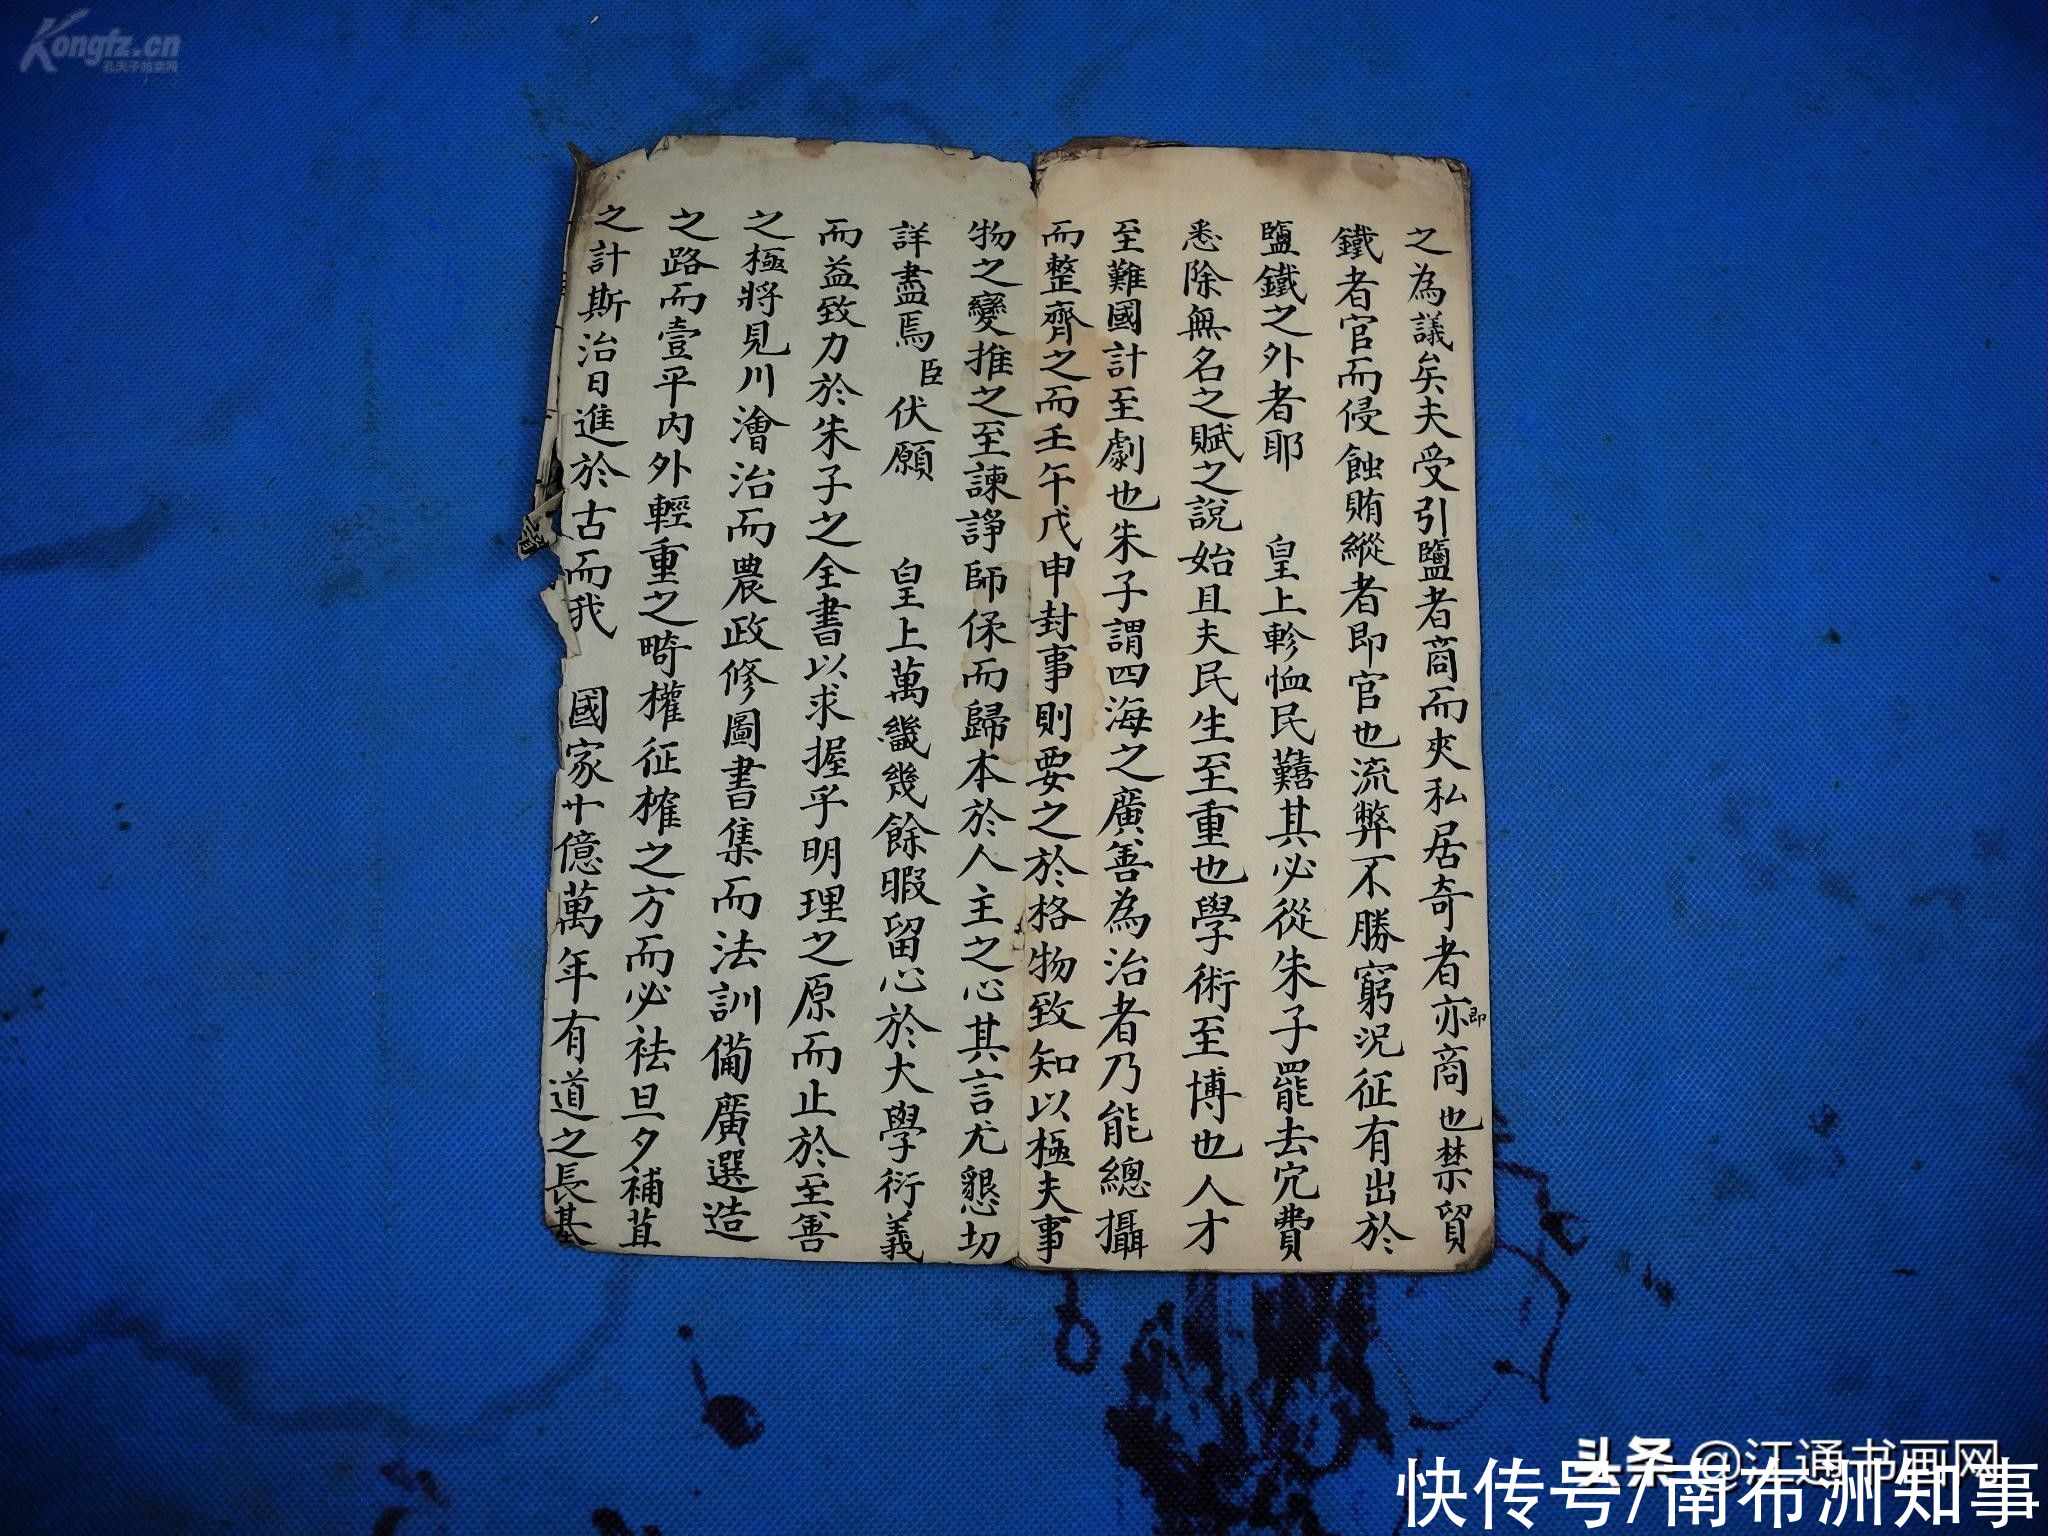 之為議矣夫受引鹽者商而夾私居奇者亦即商也禁貿
鐵者官而侵蝕賄縱者即官也流弊不勝窮況征有出於
鹽鐵之外者耶 皇上軫恤民囏其必從朱子罷去冗費
悉除無名之賦之說始且夫民生至重也學術至博也人才
至難國計至劇也朱子謂四海之廣善為治者乃能總攝
而整齊之而壬午戊申封事則要之於格物致知以極夫事
物之變推之至諫諍師保而歸本於人主之心其言尤懇切
詳盡焉臣伏願 皇上萬幾餘暇留心於大學衍義
而益致力於朱子之全書以求握乎明理之原而止於至善
之極將見川澮治而農政修圖書集而法訓備廣選造
之路而壹平內外輕重之畸權征榷之方而必袪旦夕補苴
之計斯治日進於古而我 國家卄億萬年有道之長基
Kongfz.cn
孔夫子拍卖网
头条 @江通书画网
快传号/南布洲知事